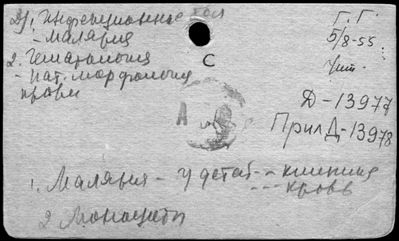 1. Инфекционные бол
- Малярия
2. Гематология
- Пат. морфология
крови
Г. Г.
5/8-55.
C
A
Д-13977
Прил Д-13978
1. Малярия - у детей --
--- кровь
2 Моноциты